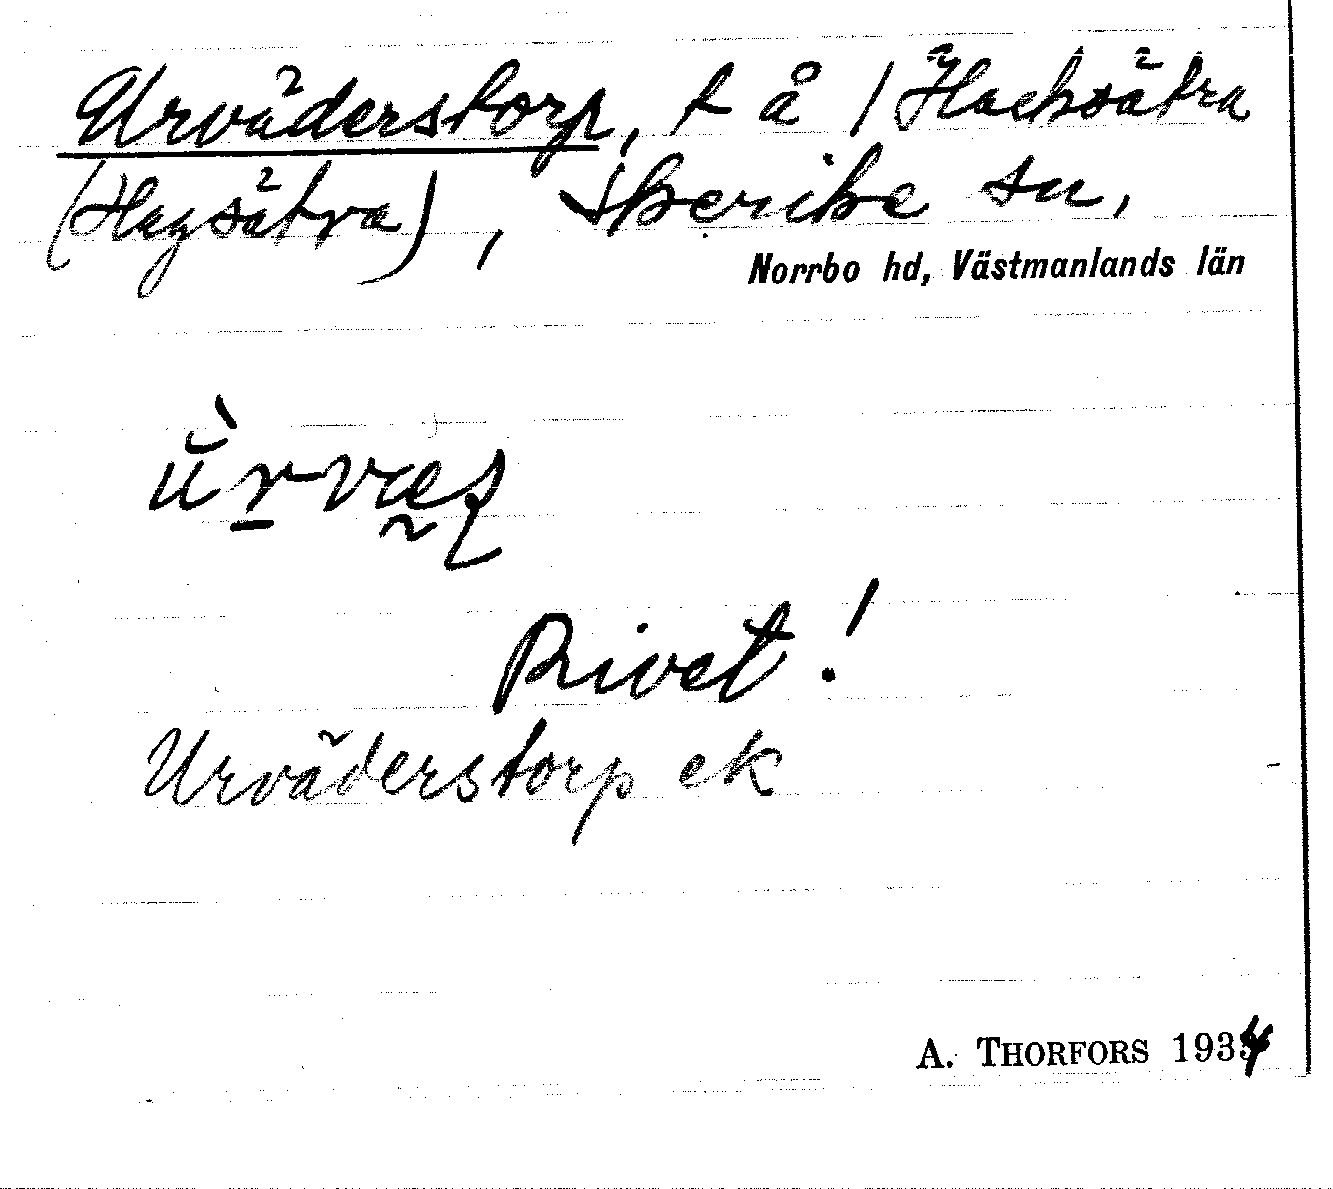 Urväderstorp, t å / Hacksätra
(Hagsätra), Skerike sn,
Norrbo hd, Västmanlands län
Rivet!
Urväderstorp ek
A. THORFORS 1934